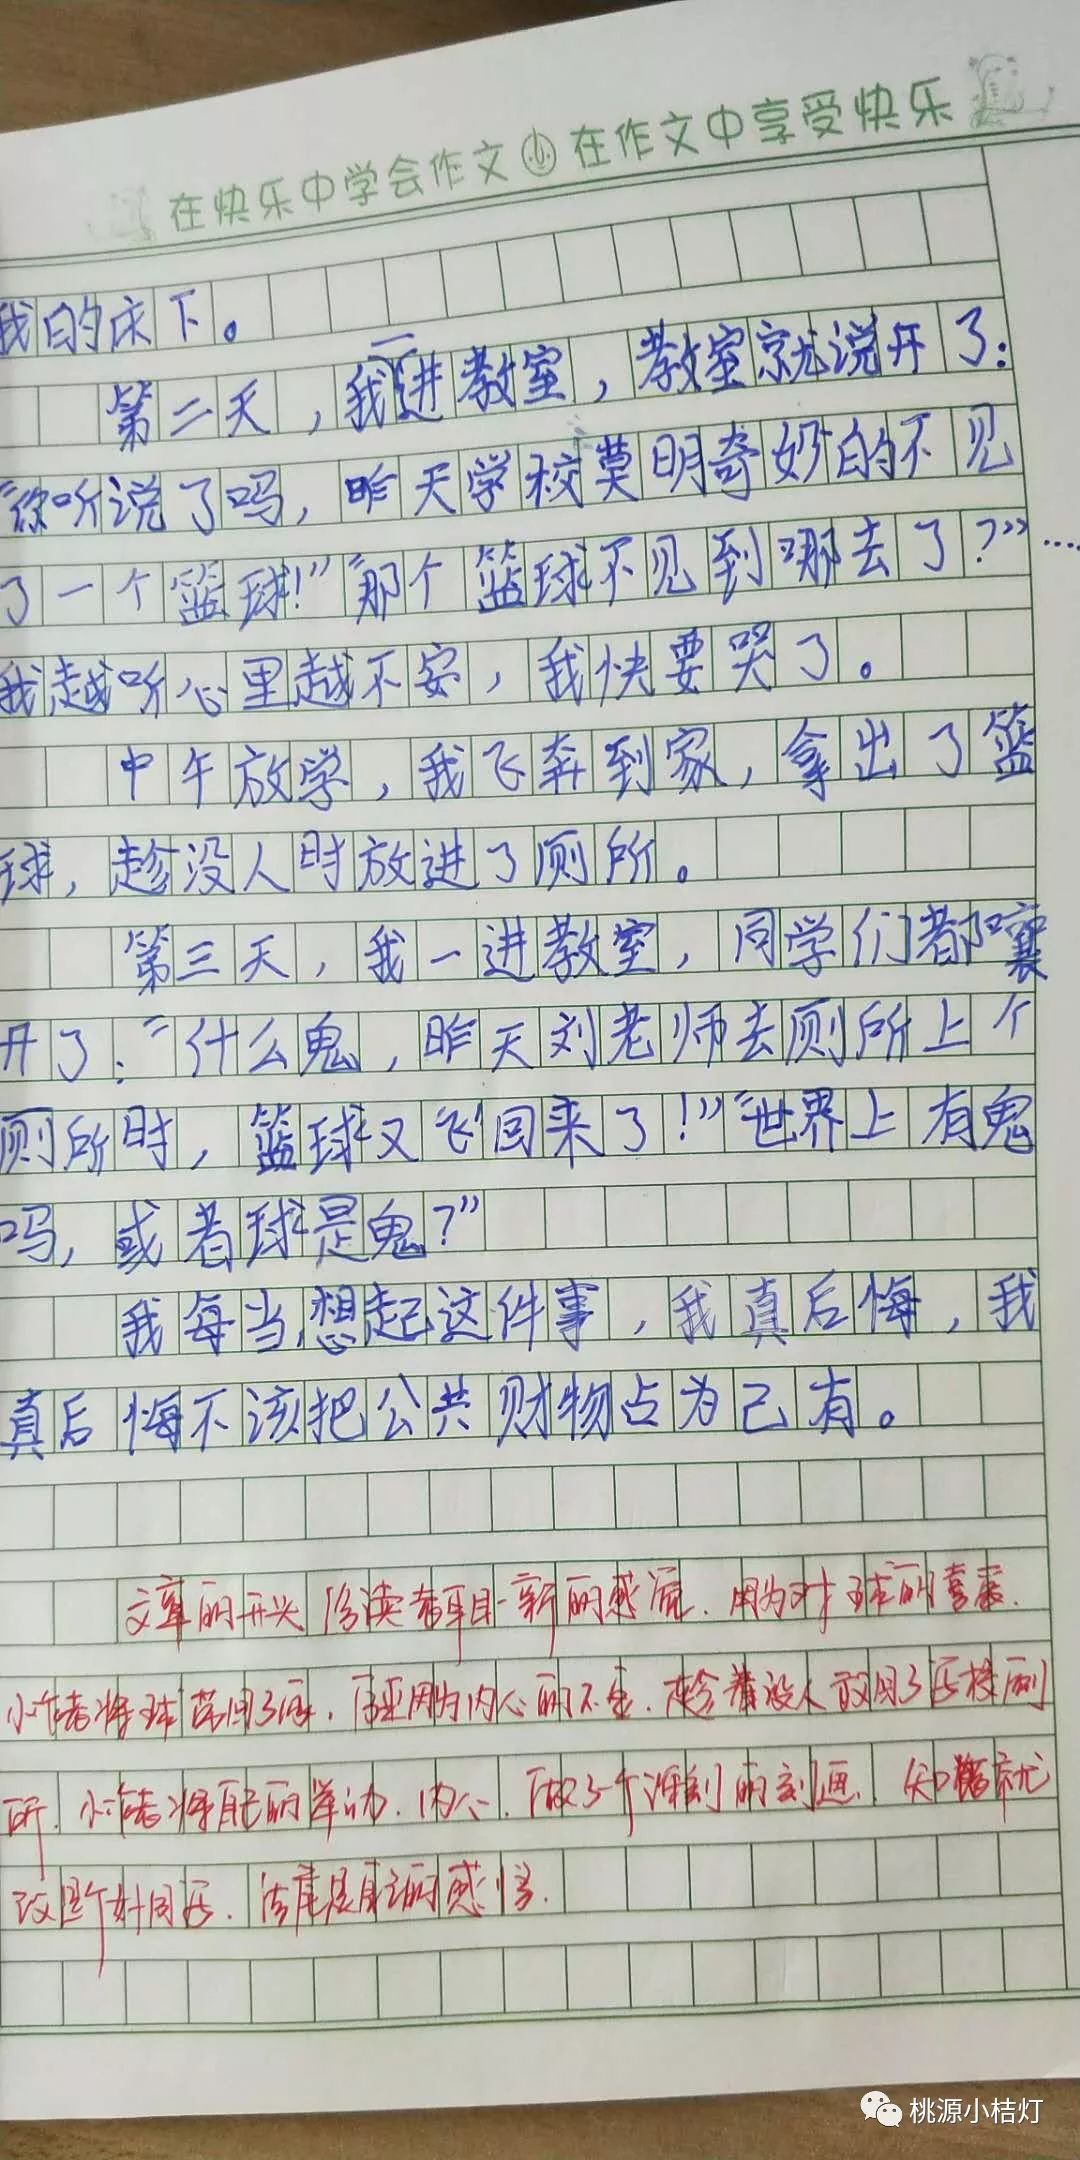 在快乐中学会作文 在作文中享受快乐
我的床下。
第二天，我一进教室，教室就说开了：
“你听说了吗，昨天学校莫明奇妙的不见
了一个篮球！”“那个篮球不见到哪去了？”……
我越听心里越不安，我快要哭了。
中午放学，我飞奔到家，拿出了篮
球，趁没人时放进了厕所。
第三天，我一进教室，同学们都嚷
开了：“什么鬼，昨天刘老师去厕所上个
厕所时，篮球又飞回来了！”“世界上有鬼
吗，或者球是鬼？”
我每当想起这件事，我真后悔，我
真后悔不该把公共财物占为己有。
文章的开头给读者耳目一新的感觉。因为对球的喜爱，
小作者将球带回了家，因为内心的不安，趁着没人放回了学校厕
所，小作者将自己的举动，内心，做了个深刻的刻画，知错就
改是个好同学。结尾是自己的感悟。
桃源小桔灯